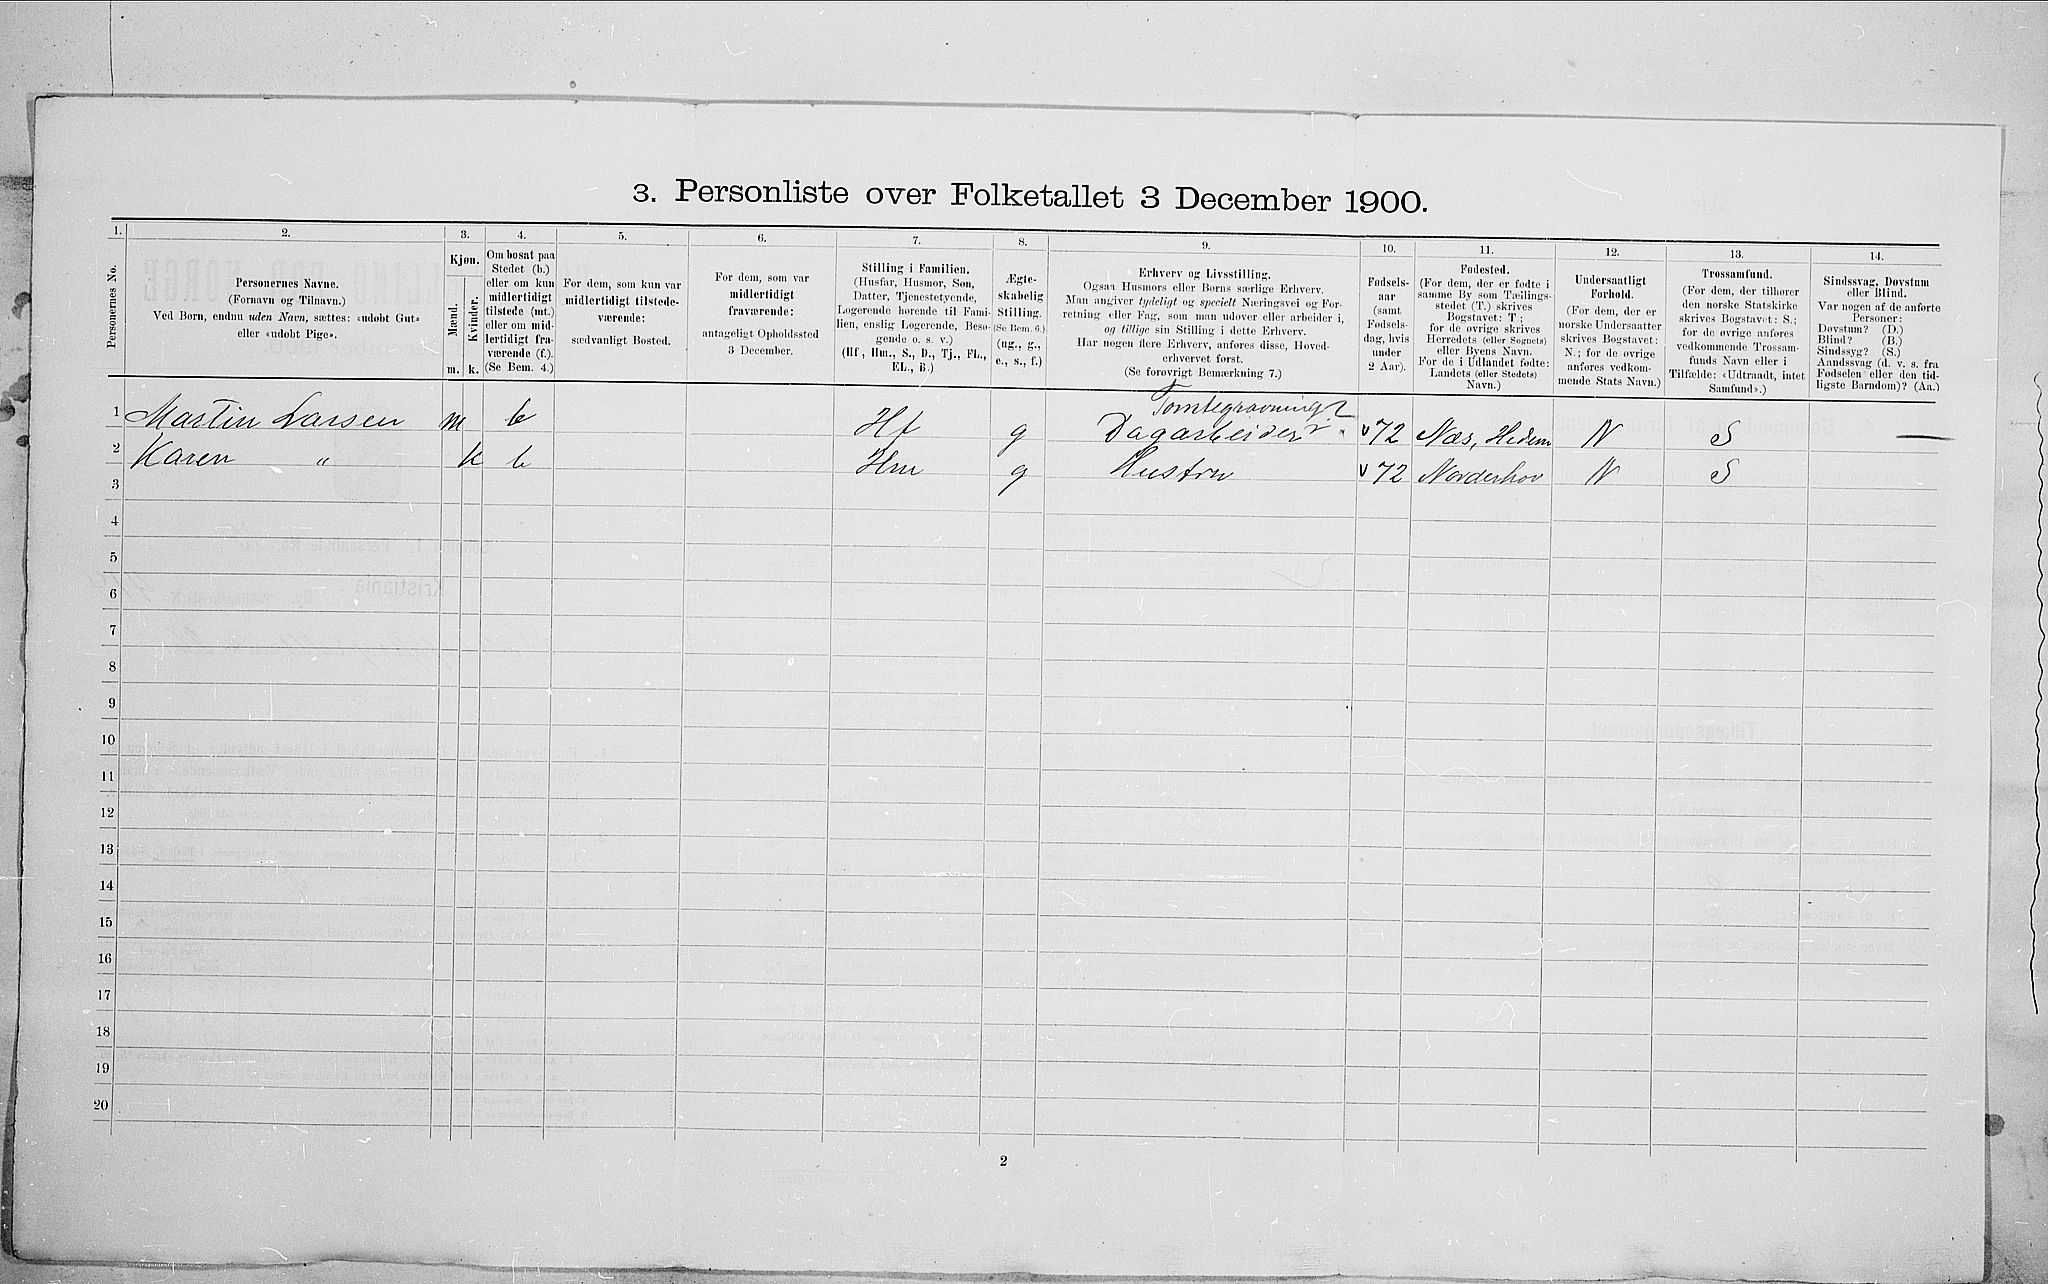 3. Personliste over Folketallet 3 December 1900.
1. 2. 3. 4. 5. 6. 7. 8. 9. 10. 11. 12. 13. 14.
Personernes No.
Personernes Navne.
(Fornavn og Tilnavn.)
Ved Børn, endnu uden Navn, sættes: «udøbt Gut»
eller «udøbt Pige».
Kjøn.
Mænd.
Kvinder.
m. k.
Om bosat paa
Stedet (b.)
eller om kun
midlertidigt
tilstede (mt.)
eller om mid-
lertidigt fra-
værende (f.).
(Se Bem. 4.)
For dem, som kun var
midlertidigt tilstede-
værende:
sædvanligt Bosted.
For dem, som var
midlertidigt
fraværende:
antageligt Opholdssted
3 December.
Stilling i Familien.
(Husfar, Husmor, Søn,
Datter, Tjenestetyende,
Logerende hørende til Fami-
lien, enslig Logerende, Besø-
gende o. s. v.)
(Hf, Hm., S., D., Tj., FL.,
EL., B.)
Ægte-
skabelig
Stilling.
(Se Bem. 6.)
(ug., g.,
e., s., f.)
Erhverv og Livsstilling.
Ogsaa Husmors eller Børns særlige Erhverv.
Man angiver tydeligt og specielt Næringsvei og For-
retning eller Fag, som man udøver eller arbeider i,
og tillige sin Stilling i dette Erhverv.
Har nogen flere Erhverv, anføres disse, Hoved-
erhvervet først.
(Se forøvrigt Bemærkning 7.)
Fødsels-
aar
(samt
Fødsels-
dag, hvis
under
2 Aar).
Fødested.
(For dem, der er fødte i
samme By som Tællings-
stedet (T.) skrives
Bogstavet: T.;
for de øvrige skrives
Herredets (eller Sognets)
eller Byens Navn.
For de i Udlandet fødte:
Landets (eller Stedets)
Navn.)
Undersaatligt
Forhold.
(For dem, der er
norske Undersaatter
skrives Bogstavet:
N.; for de øvrige
anføres vedkom-
mende Stats Navn.)
Trossamfund.
(For dem, der tilhører
den norske Statskirke
skrives Bogstavet: S.;
for de øvrige anføres
vedkommende Trossam-
funds Navn eller i
Tilfælde: «Udtraadt, intet
Samfund».)
Sindssvag, Døvstum
eller Blind.
Var nogen af de anførte
Personer:
Døvstum? (D.)
Blind? (B.)
Sindssyg? (S.)
Aandssvag (d. v. s. fra
Fødselen eller den tid-
ligste Barndom)? (Aa.)
Tomtegravning
1 Martin Larsen m b Hf g Dagarbeider v 72 Næs, Hedem N S —
2 Karen " k b Hm g Hustru v 72 Norderhov N S
3
4
5
6
7
8
9
10
11
12
13
14
15
16
17
18
19
20
2